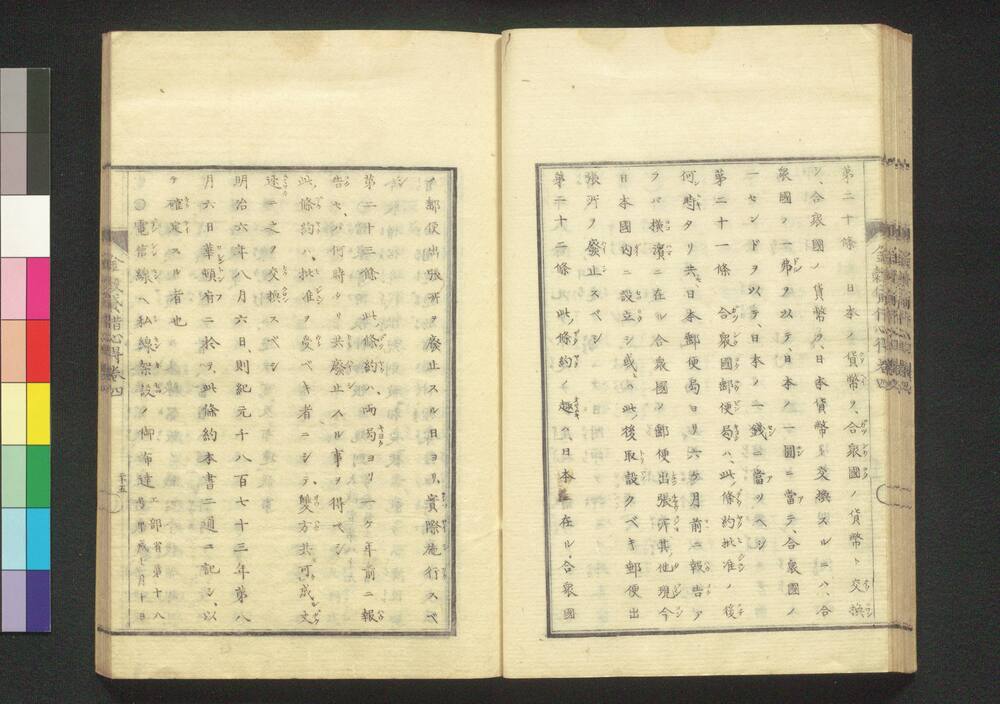 第二十條 日本ノ貨幣ヲ、合衆國ノ貨幣ト交換
シ、合衆國ノ貨幣ヲ、日本貨幣ト交換スルニハ、合
衆國ノ一弗ヲ以テ、日本ノ一圓ニ當テ、合衆國ノ
一セントヲ以テ、日本ノ一錢ニ當ツヘシ
第二十一條 合衆國郵便局ハ、此ノ條約批准ノ後
何時タリ共、日本郵便局ヨリ六ケ月前ニ報告ア
ラバ橫濱ニ在ル合衆國ノ郵便出張所其ノ他現今
日本國内ニ設立シ或ハ此ノ後取設クベキ郵便出
張所ヲ廢止スベシ
第二十二條 此ノ條約ノ趣ハ日本ニ在ル合衆國
ノ郵便出張所ヲ廢止スルノ日ヨリ、實際施行スベ
シ
第二十三條 此ノ條約ハ、両局ヨリ一ケ年前ニ報
告セバ何時タリ共廢止スル事ヲ得ベシ
此ノ條約ハ、批准ヲ受ベキ者ニシテ、雙方共可成丈
速ニ之ヲ交換スベシ
明治六年八月六日、則紀元千八百七十三年第八
月六日華頓府ニ於テ、此條約本書二通ニ記シ、以
テ確定スル者也
◯電信線ヘ私線架設ノ御布達 工部省第十八